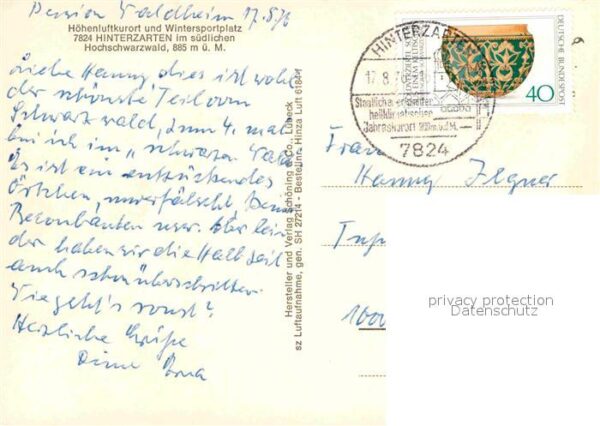 Pension Waldheim 17.8.76
Höhenluftkurort und Wintersportplatz
7824 HINTERZARTEN im südlichen
Hochschwarzwald, 885 m ü. M.
Liebe Hanny, dies ist wohl
der schönste Teil vom
Schwarzwald, zum 4. mal
bin ich im "schwarzen
Es ist ein entzückendes
Örtchen, unverfälscht
Bauten usw. Aber lei
der haben wir die Halbzeit
auch schon überschritten.
Wie geht's sonst?
Herzliche Grüße
Deine
Hersteller und Verlag Schöning & Co., Lübeck
sz Luftaufnahme, gen. SH 27214 - Bestellnr. Hinza Luft 6184/1
HINTERZARTEN
17.8.76
Staatlich anerkannter
heilklimatischer
Jahreskurort
7824
DEUTSCHE BUNDESPOST
40
Frau
Hanny
1000
privacy protection
Datenschutz